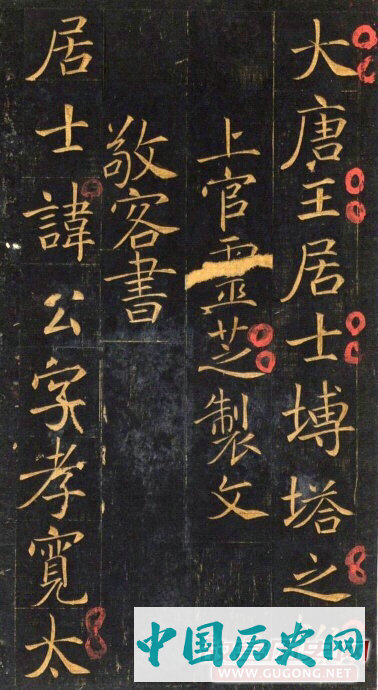 大唐王居士塼塔之
上官靈芝製文
敬客書
居士諱公字孝寬太
中国历史网
WWW.GUGONG.NET